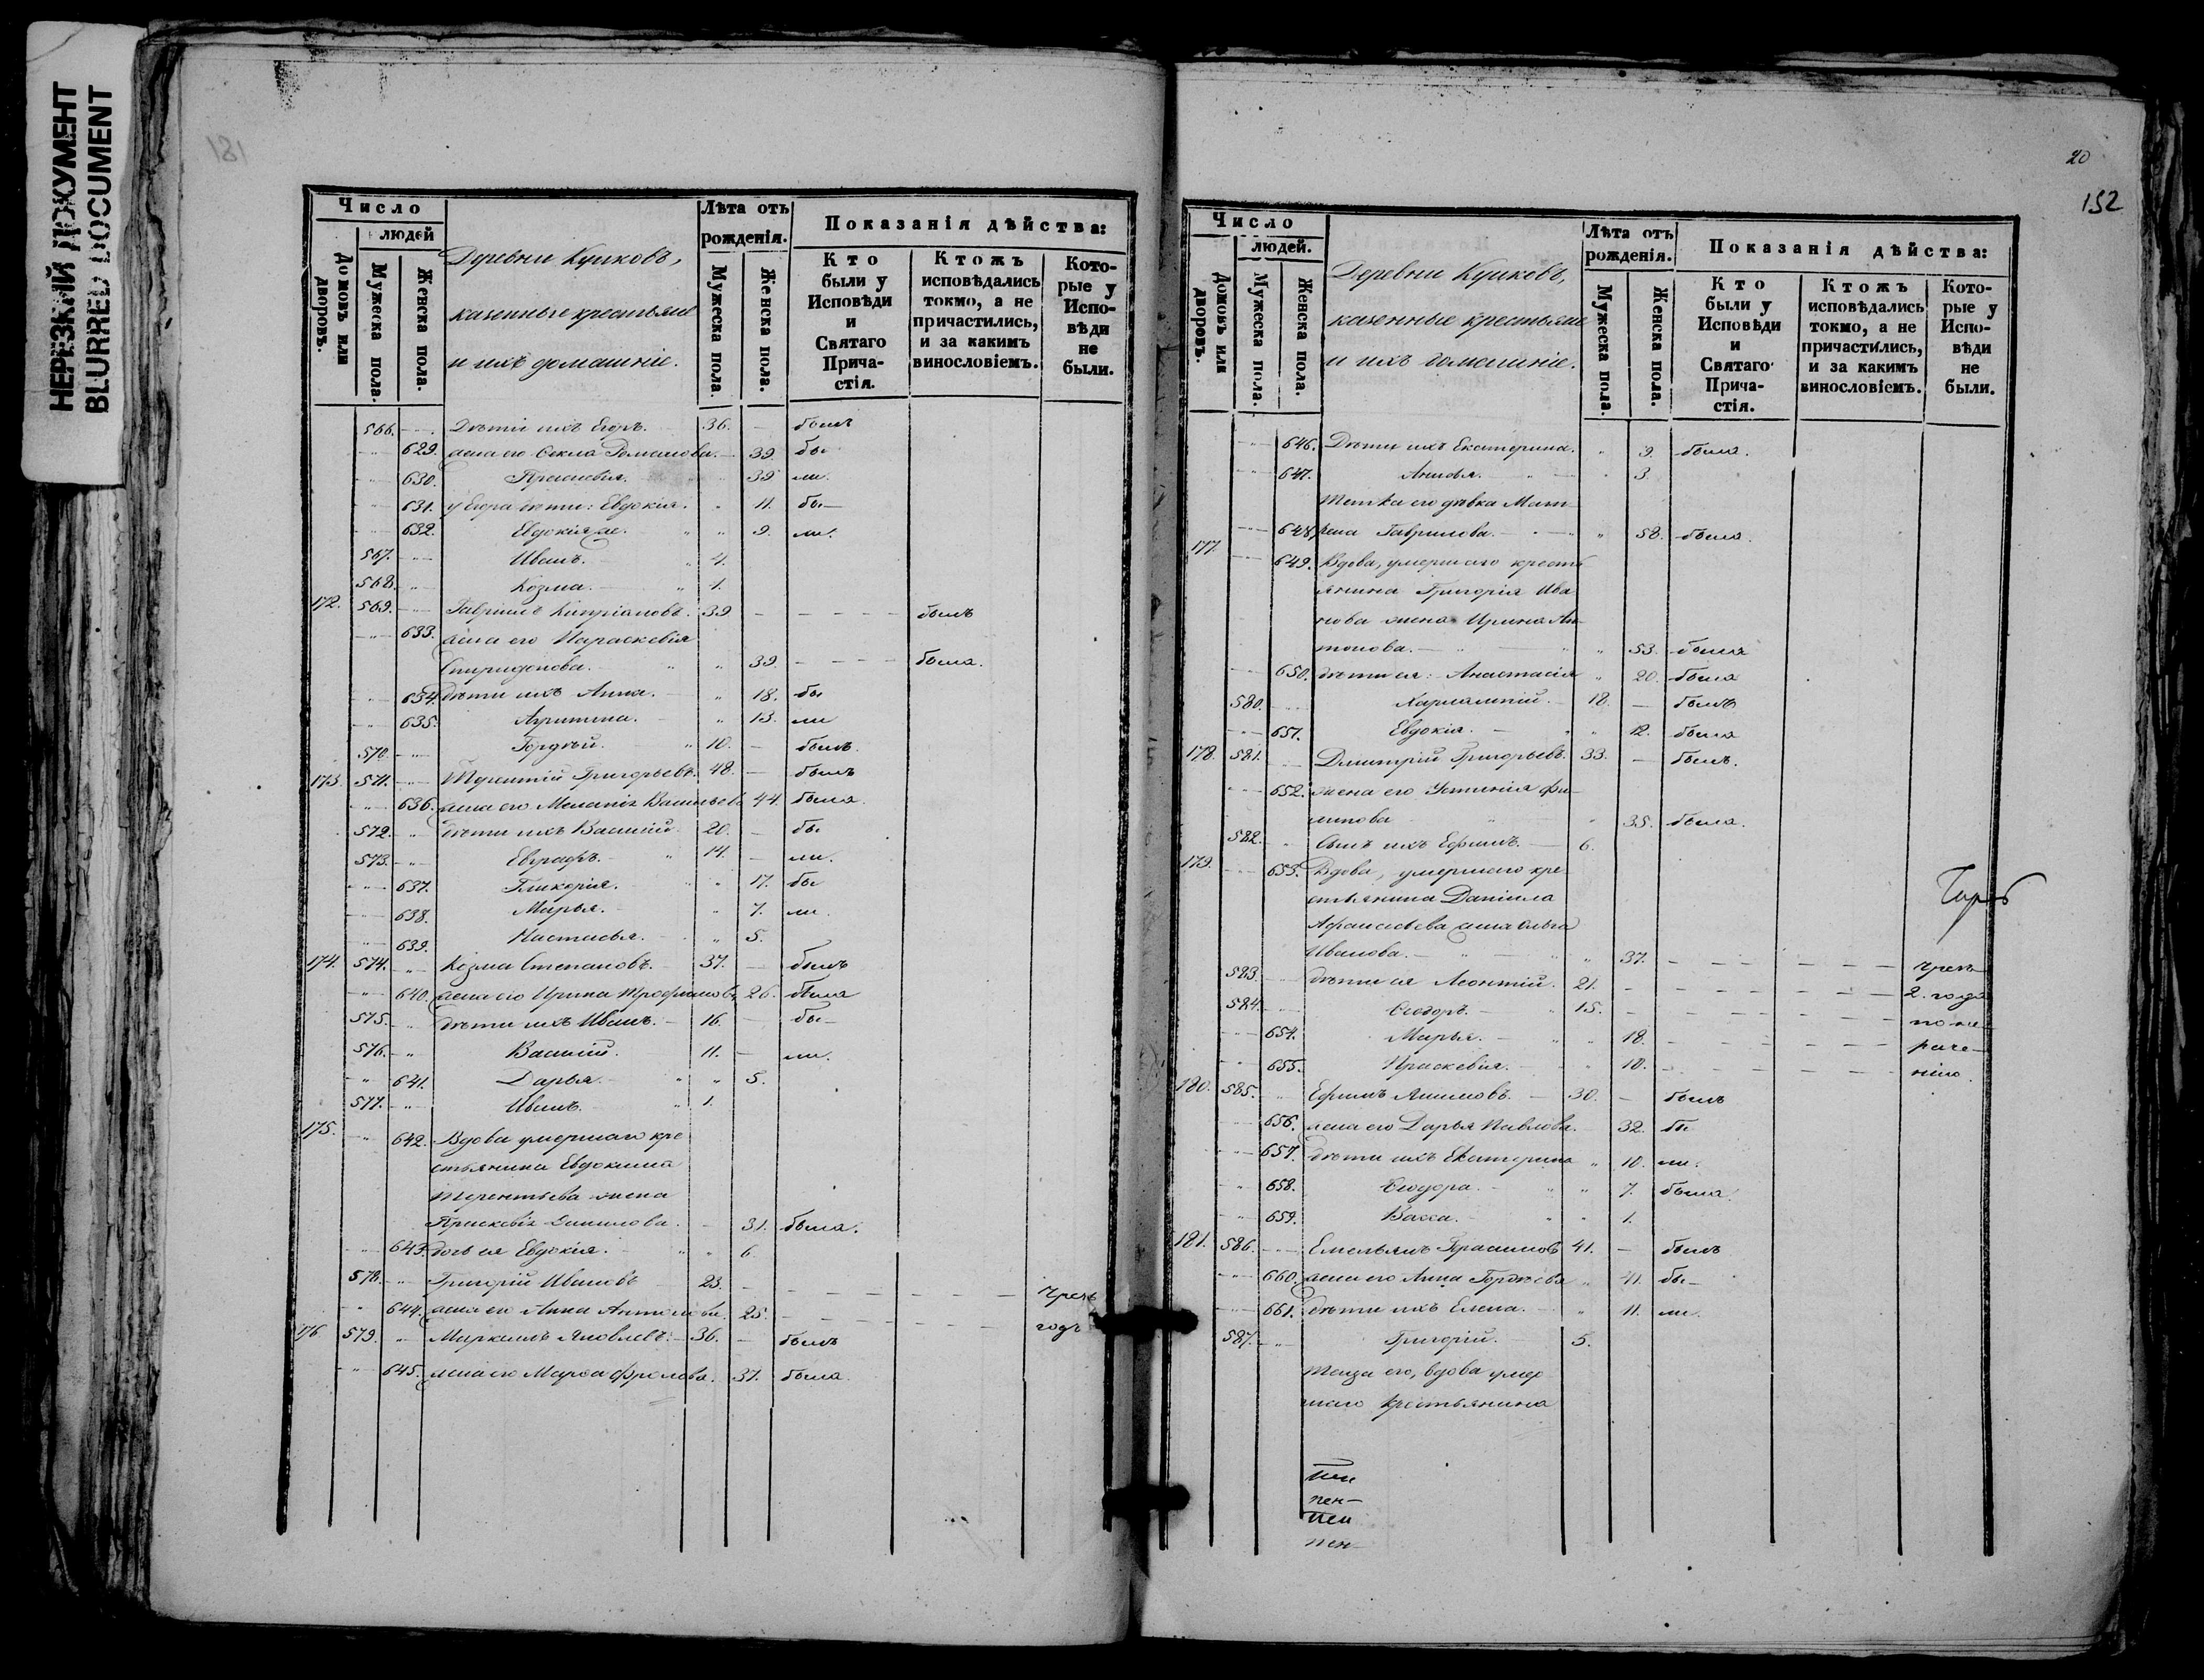 НЕРЕЗКИЙ ДОКУМЕНТ
BLURRED DOCUMENT
181
Число
людей
Домовъ или дворовъ.
Мужеска пола.
Женска пола.
Деревни Куиковъ,
казенные крестьяне
и ихъ домашніе.
Лѣта отъ рожденія.
Мужеска пола.
Женска пола.
Показанія дѣйства:
Кто были у Исповѣди и Святаго Причастія.
Ктожъ исповѣдались токмо, а не причастились, и за какимъ винословіемъ.
Которые у Исповѣди не были.
566. Дѣти ихъ Егоръ. 36. — былъ
629. жена его Ѳекла Романова. — 39. бы
630. Праскевія. 39 ли.
631. у Егора дѣти: Евдокія. 11. бы—
632. Евдокія же. 9. ли.
567. Иванъ. 4.
568. Козма. 1.
172. 569. Гавріилъ Кипріановъ. 39 — — — — былъ
633. жена его Параскевія
Спиридонова. 39. — — — была.
634. дѣти ихъ Анна. 18. бы
635. Агрипина. 13. ли
570 Гордѣй. 10. — былъ.
173. 571. Терентій Григорьевъ. 48. — былъ
636. жена его Меланія Васильева 44. была.
572. дѣти ихъ Василій. 20. — бы
573. Евграфъ. 14. — ли.
637. Гликерія. 17. бы
638. Марья. 7. ли.
639. Настасья. 5.
174. 574. Козма Степановъ. 37. — былъ
640. жена его Ирина Трофимова 26. была
575. дѣти ихъ Иванъ. 16. — бы—
576. Василій. 11. — ли.
641. Дарья. 5.
577. Иванъ. 1.
175. 642. Вдова умершаго кре
стьянина Евдокима
Терентьева жена
Праскевія Данилова. — 31. была.
643. дочь ея Евдокія. 6.
578. Григорій Ивановъ 23. — — — — — чрезъ
644. жена его Анна Антонова. 25. — — — — — годъ
176 579. Маркелъ Яковлевъ. — 36. — былъ
645. жена его Марѳа Фролова. 37. была.
20
152
Число
людей.
Домовъ или дворовъ.
Мужеска пола.
Женска пола.
Деревни Куиковъ,
казенные крестьяне
и ихъ домашніе.
Лѣта отъ рожденія.
Мужеска пола.
Женска пола.
Показанія дѣйства:
Кто были у Исповѣди и Святаго Причастія.
Ктожъ исповѣдались токмо, а не причастились, и за какимъ винословіемъ.
Которые у Исповѣди не были.
646. Дѣти ихъ Екатерина. 9. была.
647. 3.
Тетка его дѣвка Мат—
648. рена Гаврилова. 58. была.
177. 649. Вдова, умершаго кресть
янина Григорія Ива
нова жена Ирина Ан—
тонова. 53. была
650. дѣти ея: Анастасія 20. была
580. Харлампій. 18. — былъ
651. Евдокія. 12. была
178. 581. Димитрій Григорьевъ. 33. — былъ.
652. жена его Устинія Фи—
липова 35. была.
582. Сынъ ихъ Ефимъ. 6.
179. 653. Вдова, умершаго кре
стьянина Даніила
Аѳанасьева жена Ольга
Иванова. 37. — — — — чрезъ
583. дѣти ея Леонтій. 21. — — — — 2. года
584. Ѳеодоръ. 15. — — — — по не—
654. Марья. 18. — — — — раче—
655. Праскевія. 10. — — — — нію.
180. 585. Ефимъ Якимовъ. 30. — былъ
656. жена его Дарья Павлова. 32. бы
657. дѣти ихъ Екатерина 10. ли.
658. Ѳеодора. 7. была.
659. Васса. 1.
181. 586. Емельянъ Герасимовъ 41. — былъ
660. жена его Анна Гордѣева 41. бы—
661. дѣти ихъ Елена. 11. ли.
587. Григорій. 5.
Теща его, вдова умер
шаго крестьянина